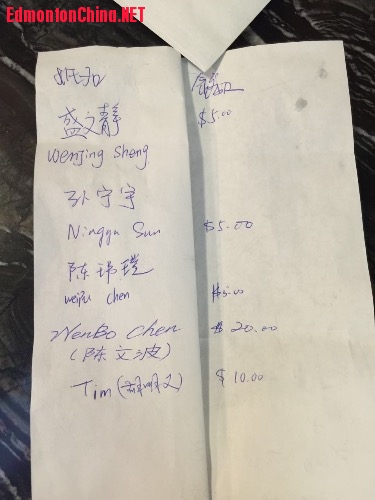 EdmontonChina.NET
盛文静 $5.00
Wenjing Sheng
孙宁宇
Ningyu Sun $5.00
陈玮
weipu chen $5.00
WenBo Chen $20.00
(陈文波)
Tim ( $10.00